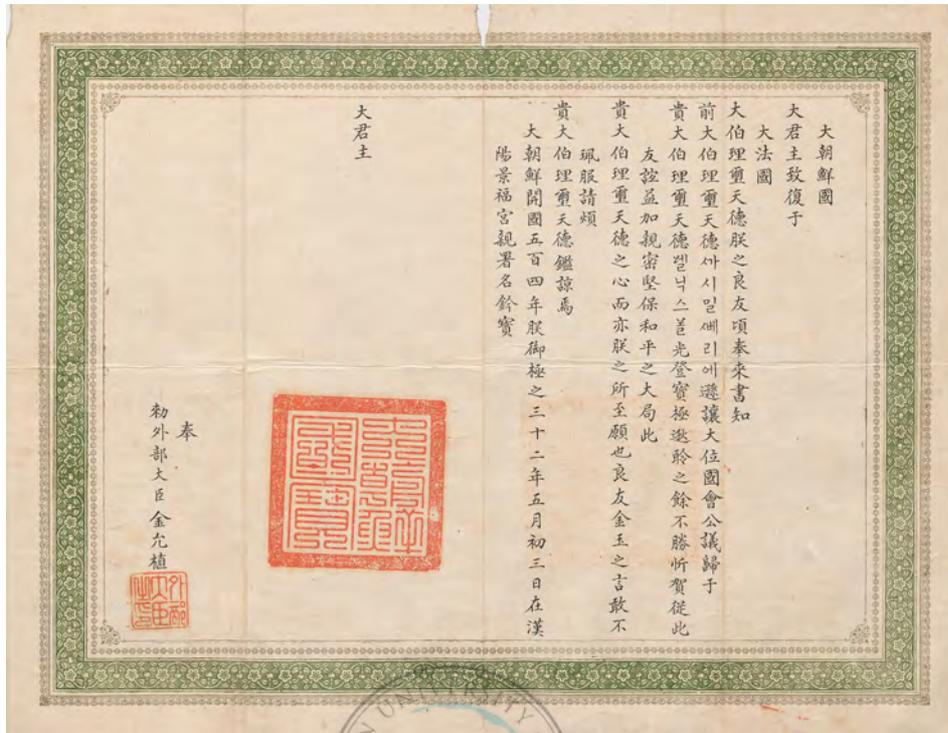 大朝鮮國
大君主致復于
大法國
大伯理璽天德朕之良友頃奉來書知
前大伯理璽天德ᄭᅡ시밀ᄲᅦ리에遜讓大位國會公議歸于
貴大伯理璽天德닉스光登寶極逖聆之餘不勝忻賀從此
友誼益加親密堅保和平之大局此
貴大伯理璽天德之心而亦朕之所至願也良友金玉之言敢不
珮服請煩
貴大伯理璽天德鑑諒焉
大朝鮮開國五百四年朕御極之三十二年五月初三日在漢
陽景福宮親署名鈐寶
大君主
奉
勅外部大臣金允植
外部大臣之印
UNIVERSITY